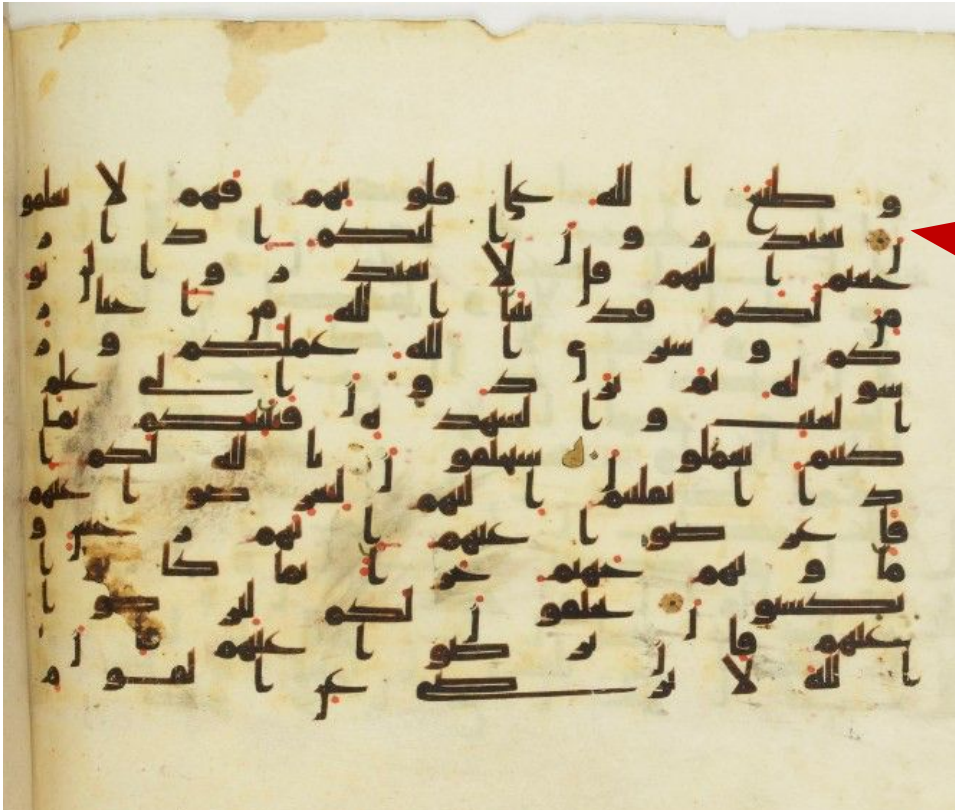 وطبع الله على قلوبهم فهم لا يعلمو
ن يعتذرون اليكم اذا ر
جعتم اليهم قل لا تعتذروا لن نو
من لكم قد نبانا الله من اخبار
كم وسيرى الله عملكم ور
سوله ثم تردون الى علم
الغيب والشهدة فينبئكم بما
كنتم تعملون سيحلفون بالله لكم ا
ذا انقلبتم اليهم لتعرضوا عنهم
فاعرضوا عنهم انهم رجس و
ماويهم جهنم جزا بما كانوا
يكسبون يحلفون لكم لترضوا
عنهم فان ترضوا عنهم فان
الله لا يرضى عن القوم